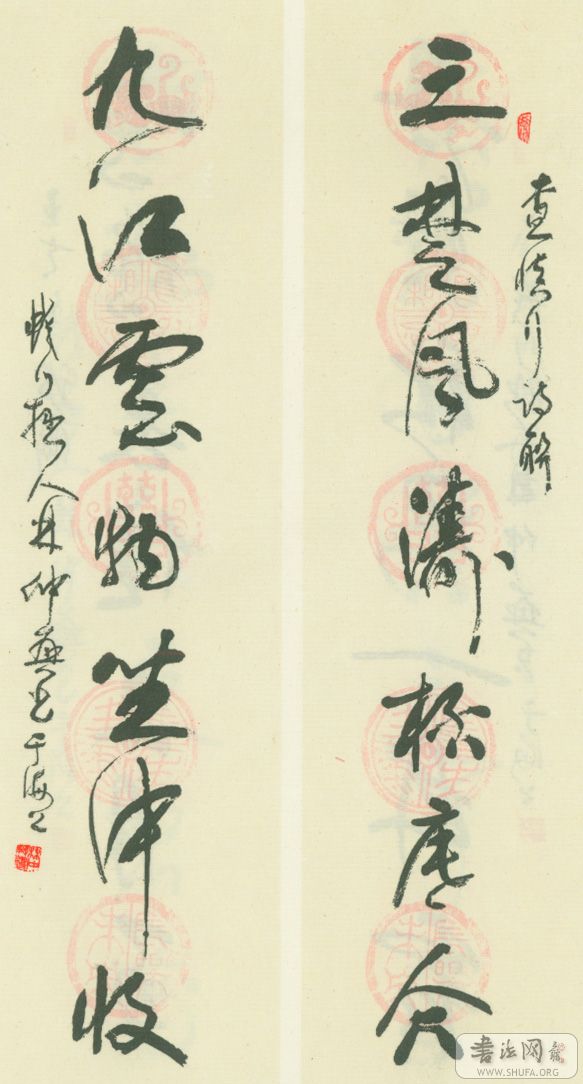 查慎行詩聯
三楚風濤杯底合
九江雲物坐中收
人林仲興書于海上
書法网
WWW.SHUFA.ORG